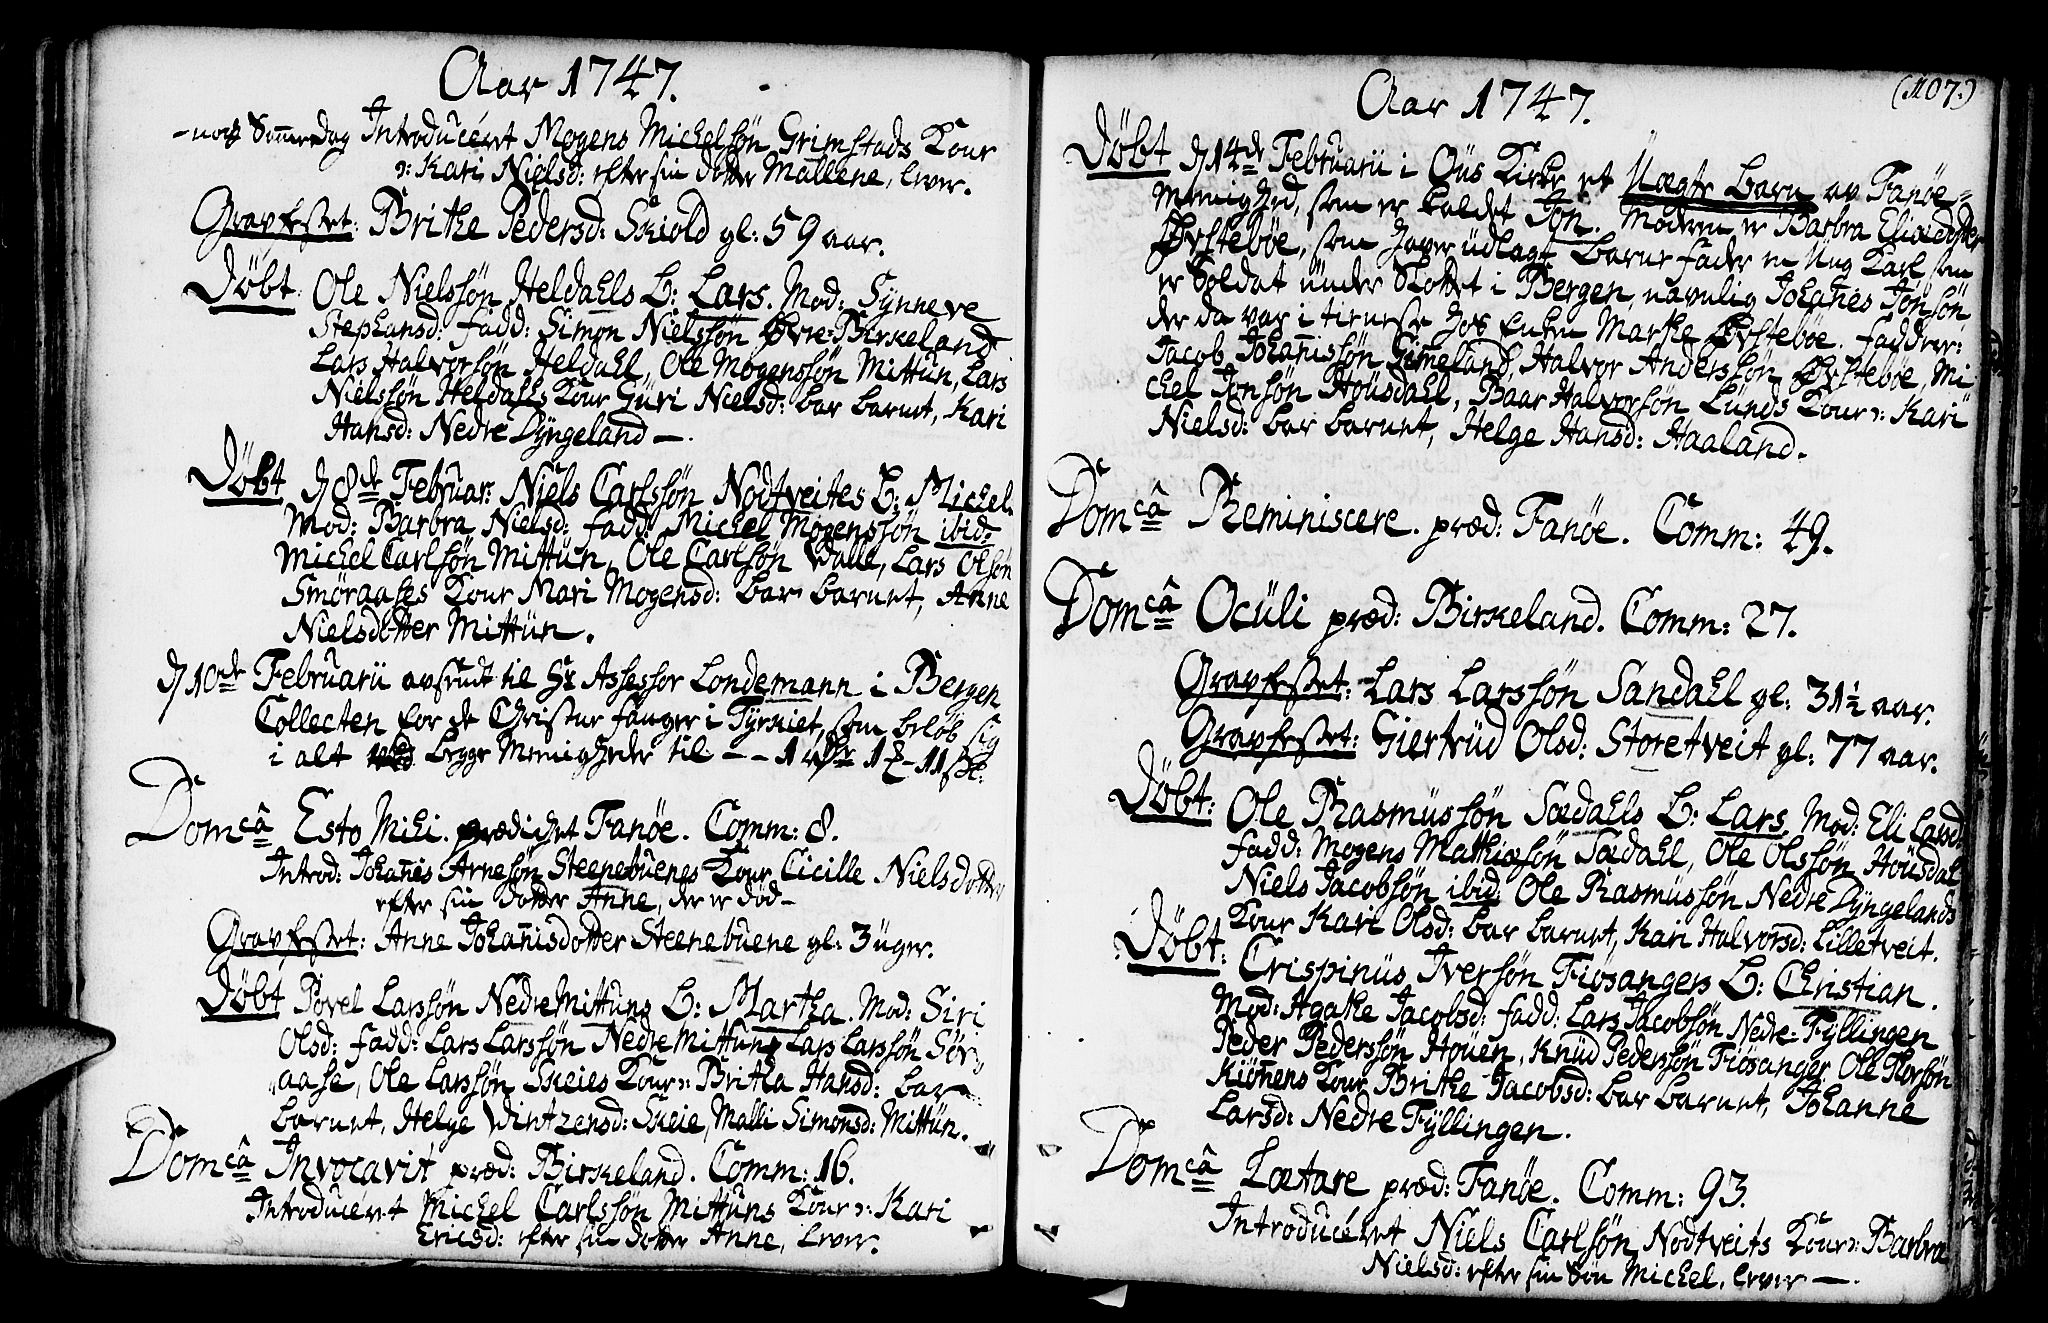 Aar 1747.
- noch Sønnedag Introduceret Mogens Michelsøn Grimstads Kone
n: Kari Nielsd: efter sin dotter Mallene, lever.
Gravfestet: Brithe Pedersd: Skiold gl: 59 aar.
Døbt Ole Nielssøn Heldahls b: Lars. Mod: Synneve
Stephansd: fadd: Simon Nielssøn Øvre-Birkeland
Lars Halvorsøn Heldahl, Ole Mogenssøn Mittün, Lars
Nielssøn Heldahls Kone Güri Nielsd: bar barnet, Kari
Hansd: Nedre Dyngeland —.
Døbt d 8de Februar: Niels Carlssøn Nødtveites b: Michel.
Mod: Barbra Nielsd: fadd: Michel Mogenssøn ibid:
Michel Carlsøn Mittün, Ole Carlsøn Walle, Lars Olsøn
Smøraases Kone Mari Mogensd: bar barnet, Anne
Nielsdotter Mittün.
d 10de Februarii avsendt til Hr Assessor Londemann i Bergen
Collecten for de Christne fanger i Tyrkiet, som beløb sig
i alt begge Menigheder til - - 1 rdlr 1 - 11 sk:
Domcâ Esto Mihi. prædichet Fanöe. Comm: 8.
Introd: Johañes Arnesøn Steenebüenes Kone Cicille Nielsdotter
efter sin dotter Anne, der er død -
Gravfestet: Anne Johañisdotter Steenebüene gl: 3 üger.
Døbt Povel Larssøn Nedre Mittuns b: Martha. Mod: Siri
Olsd: fadd: Lars Larssøn Nedre Mittun, Lars Larssøn Sør-
aase, Ole Larssøn Skeies Kone n: Britha Hansd: bar
barnet, Helge Wintzensd: Skeie, Malli Simonsd: Mittün.
Domcâ Invocavit præd: Birkeland. Comm: 16.
Introduceret Michel Carlssøn Mittuns Kone n: Kari
Ericsd: efter sin dotter Anne, lever.
(107.)
Aar 1747.
Døbt d 14de Februarii i Øüs Kirke et Üægte barn av Fanøe-
Menighed, som er kaldet Jon. Moderen er Barbra Eliædotter
Øvstebøe, som haver üdlagt barnefader en Üng Karl som
er Soldat ünder Slottet i Bergen, navnlig Johañes Jonsøn
der da var i tieneste hos Enken Marthe Øvstebøe. faddrer:
Jacob Johañissøn Gimeland, Halvor Anderssøn Øvstebøe, Mi
chel Jonsøn Hoüsdahl, Baar Halvorsøn Lünds Kone n: Kari
Nielsd: bar barnet, Helge Hansd: Haaland.
Domcâ Reminiscere. præd: Fanøe. Comm: 49.
Domcâ Ocüli præd: Birkeland. Comm: 27.
Gravfestet: Lars Larssøn Sandahl gl: 31½ aar.
Gravfestet: Giertrüd Olsd: Storetveit gl: 77 aar.
Døbt: Ole Rasmüssøn Sædahls b: Lars Mod: Eli Larsd:
fadd: Mogens Mathiæsøn Sædahl, Ole Olssøn Hoüsdal
Niels Jacobsøn ibid: Ole Rasmüssøn Nedre Dyngelands
Kone Kari Olsd: bar barnet, Kari Halvorsd: Lilletveit.
Døbt: Crispinüs Iversøn Fiøsangers b: Christian.
Mod: Agathe Jacobsd: fadd: Lars Jacobsøn Nedre-Fyllingen
Peder Pederssøn Hoüen, Knüd Pedersøn Fiøsanger, Ole Florsøn
Kiøñens Kone Brithe Jacobsd: bar barnet, Johanne
Larsd: Nedre Fyllingen.
Domcâ Lætare præd: Fanøe. Comm: 93.
Introduceret Niels Carlsøn Nødtveits Kone n: Barbra
Nielsd: efter sin Søn Michel, lever —.